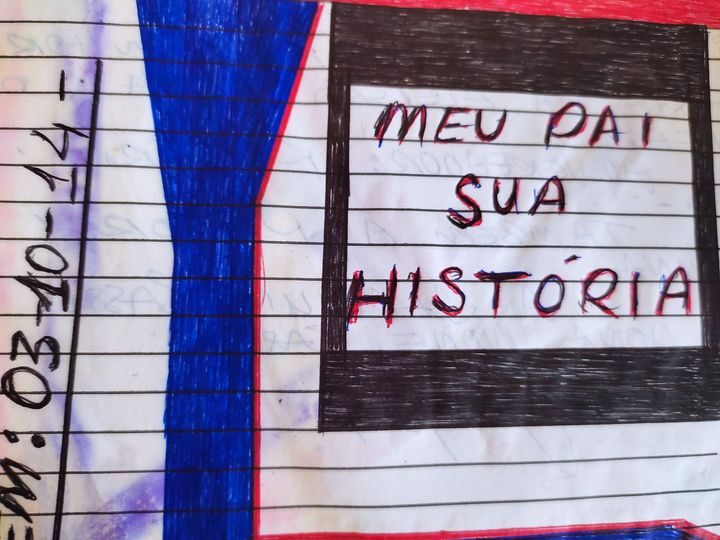 MEU PAI
SUA
HISTÓRIA
EM: 03-10-14-